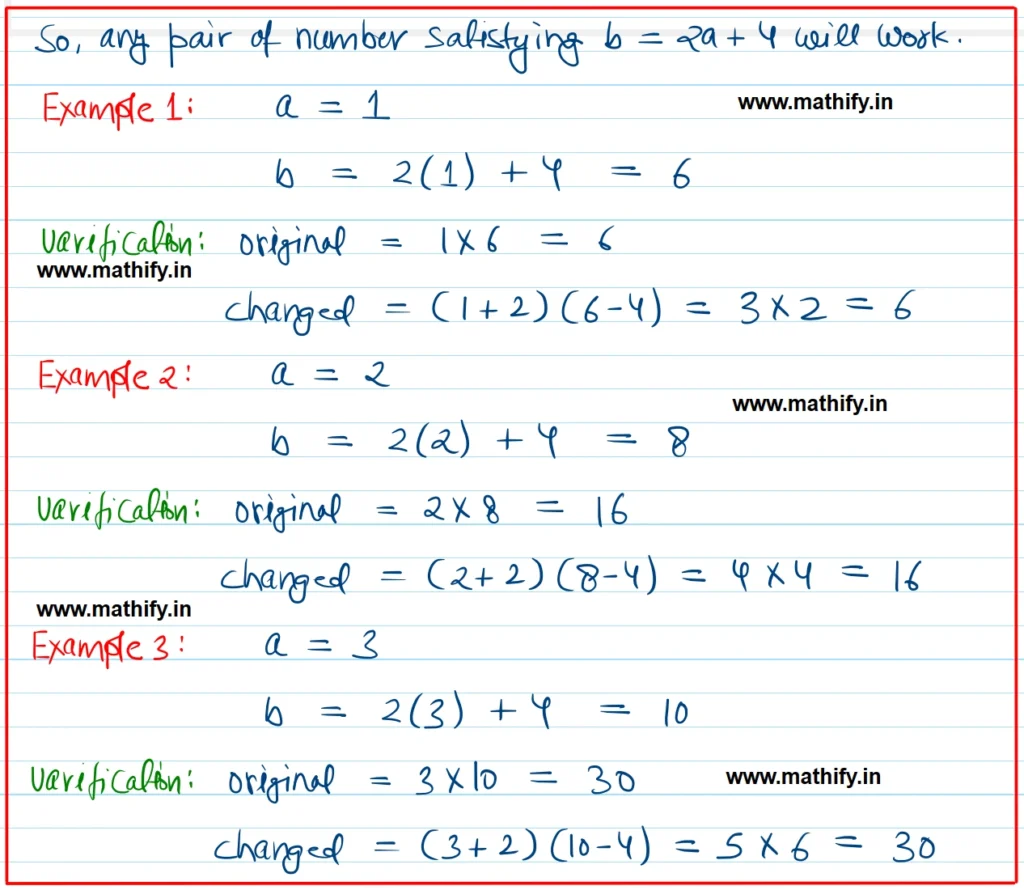 So, any pair of number satistying b = 2a + 4 will work.
Example 1: a = 1 www.mathify.in
b = 2(1) + 4 = 6
Varification: original = 1 × 6 = 6
www.mathify.in
changed = (1+2)(6-4) = 3 × 2 = 6
Example 2: a = 2
www.mathify.in
b = 2(2) + 4 = 8
Varification: original = 2 × 8 = 16
changed = (2+2)(8-4) = 4 × 4 = 16
www.mathify.in
Example 3: a = 3
b = 2(3) + 4 = 10
Varification: original = 3 × 10 = 30 www.mathify.in
changed = (3+2)(10-4) = 5 × 6 = 30